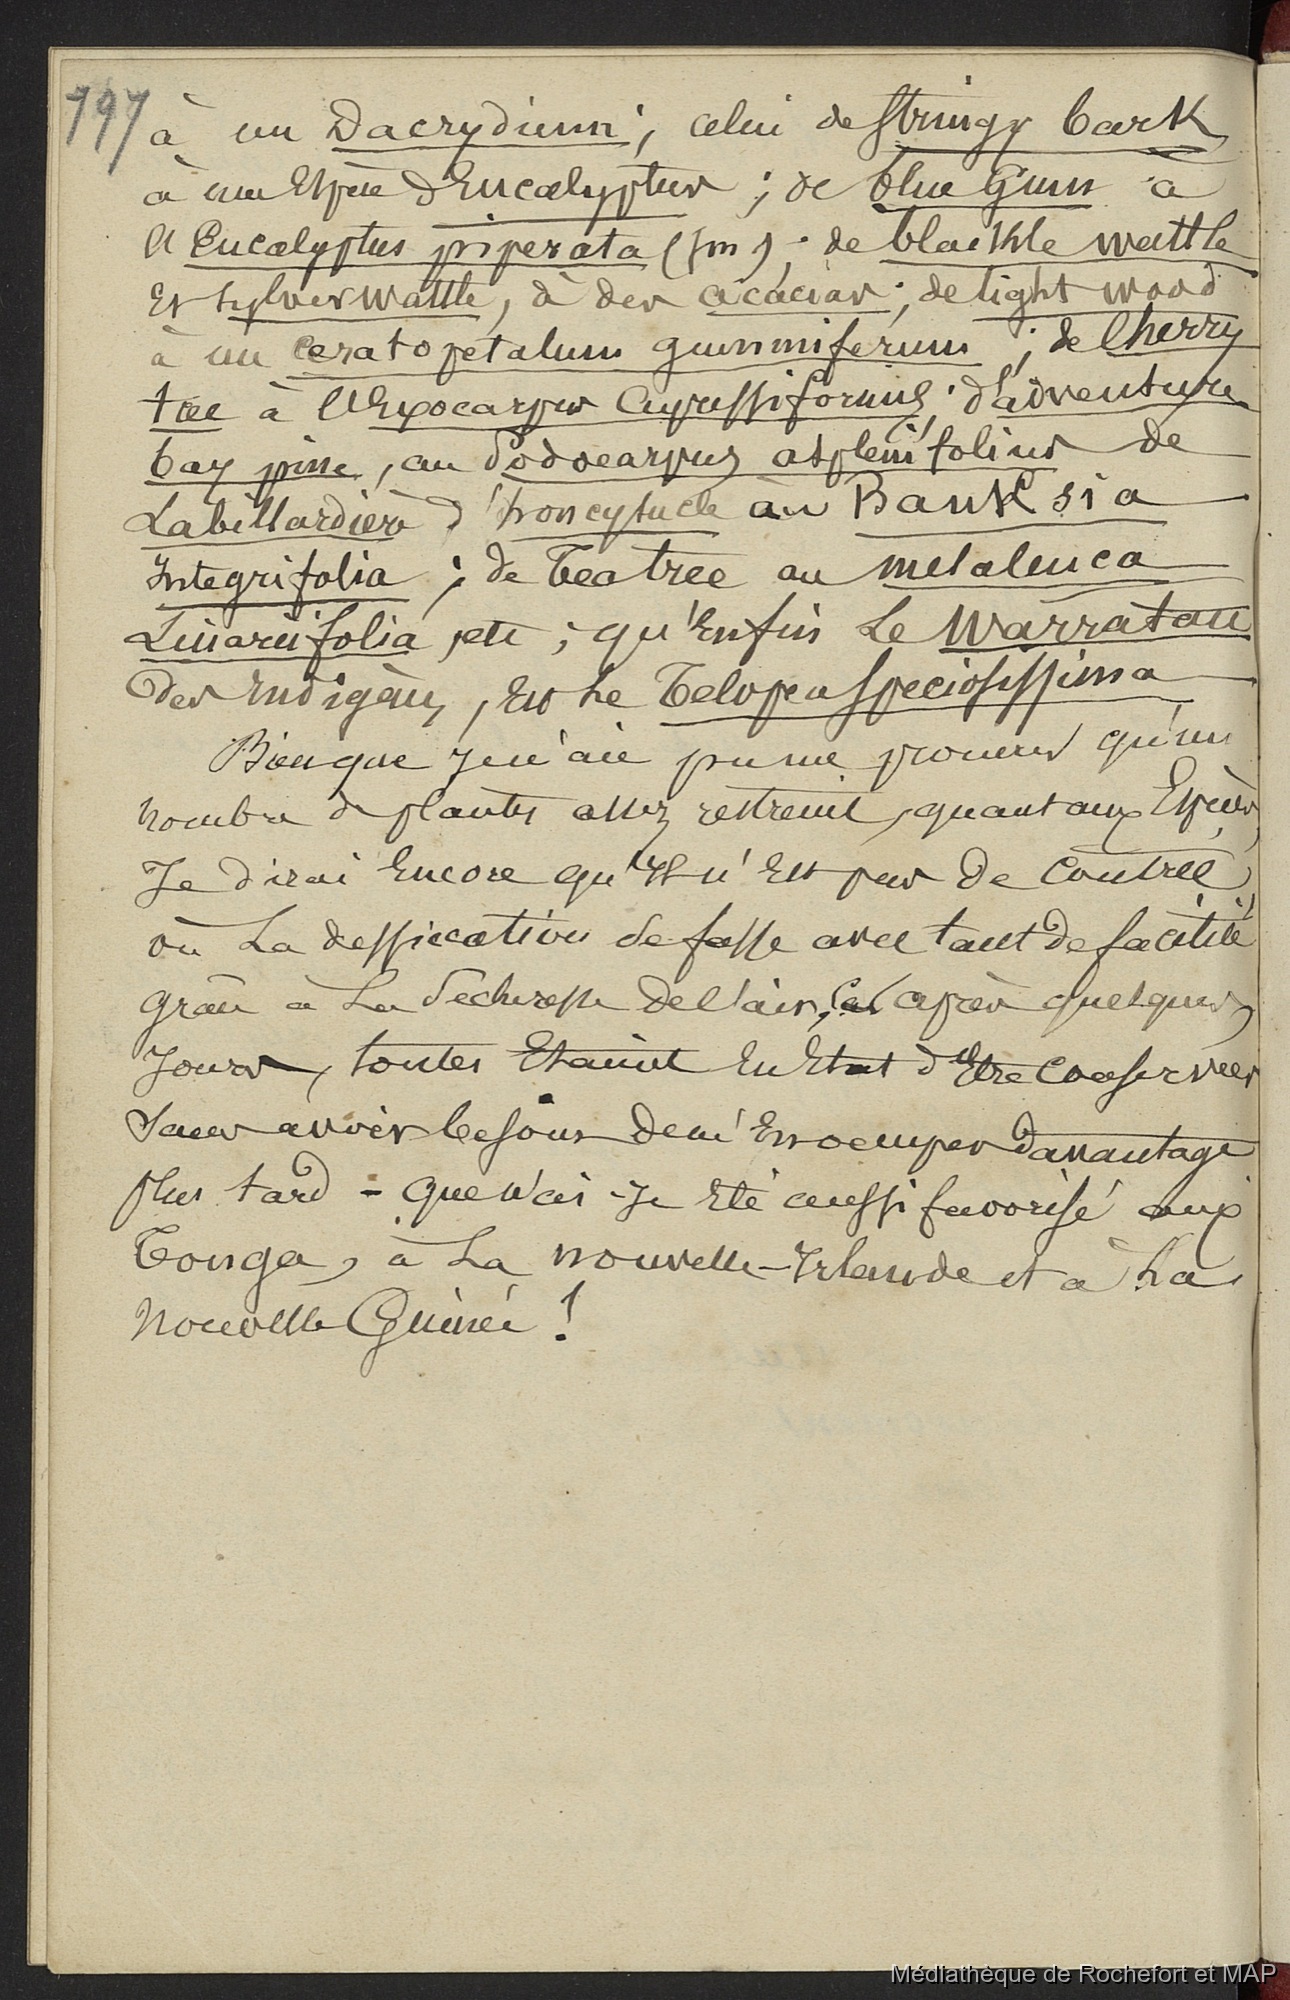 797
à un Dacrydium ; celui de Stringy bark
à une Espèce d'Eucalyptus ; de blue Gum à
l'Eucalyptus piperata (Sm) ; de blackle wattle
Et sylver wattle, à des acacias ; de light wood
à un ceratopetalum gummiferum ; de Cherry
tree à l'Exocarpus Cupressiformis ; d'adventure
bay pine, au Podocarpus asplenifolius de
Labillardière d'honeysucle au Banksia
Integrifolia ; de Tea tree au melaleuca
Linariifolia, etc ; qu'Enfin Le Warratau
des Indigènes, Est Le Telopea Speciosissima
Bien que Je n'aie pu me procurer qu'un
nombre de plantes assez restreint, quant aux Espèces,
Je dirai Encore qu'Il n'Est pas de Contrée
où La dessiccation se fasse avec tant de facilité
grâce à La Sécheresse de l'air, Car après quelques
Jours, toutes Etaient En Etat d'Etre Conservées
Sans avoir besoin de m'En occuper davantage
plus tard - que n'ai-Je Eté aussi favorisé aux
Tonga, à La nouvelle-Irlande et à La
Nouvelle Guinée !
Médiathèque de Rochefort et MAP